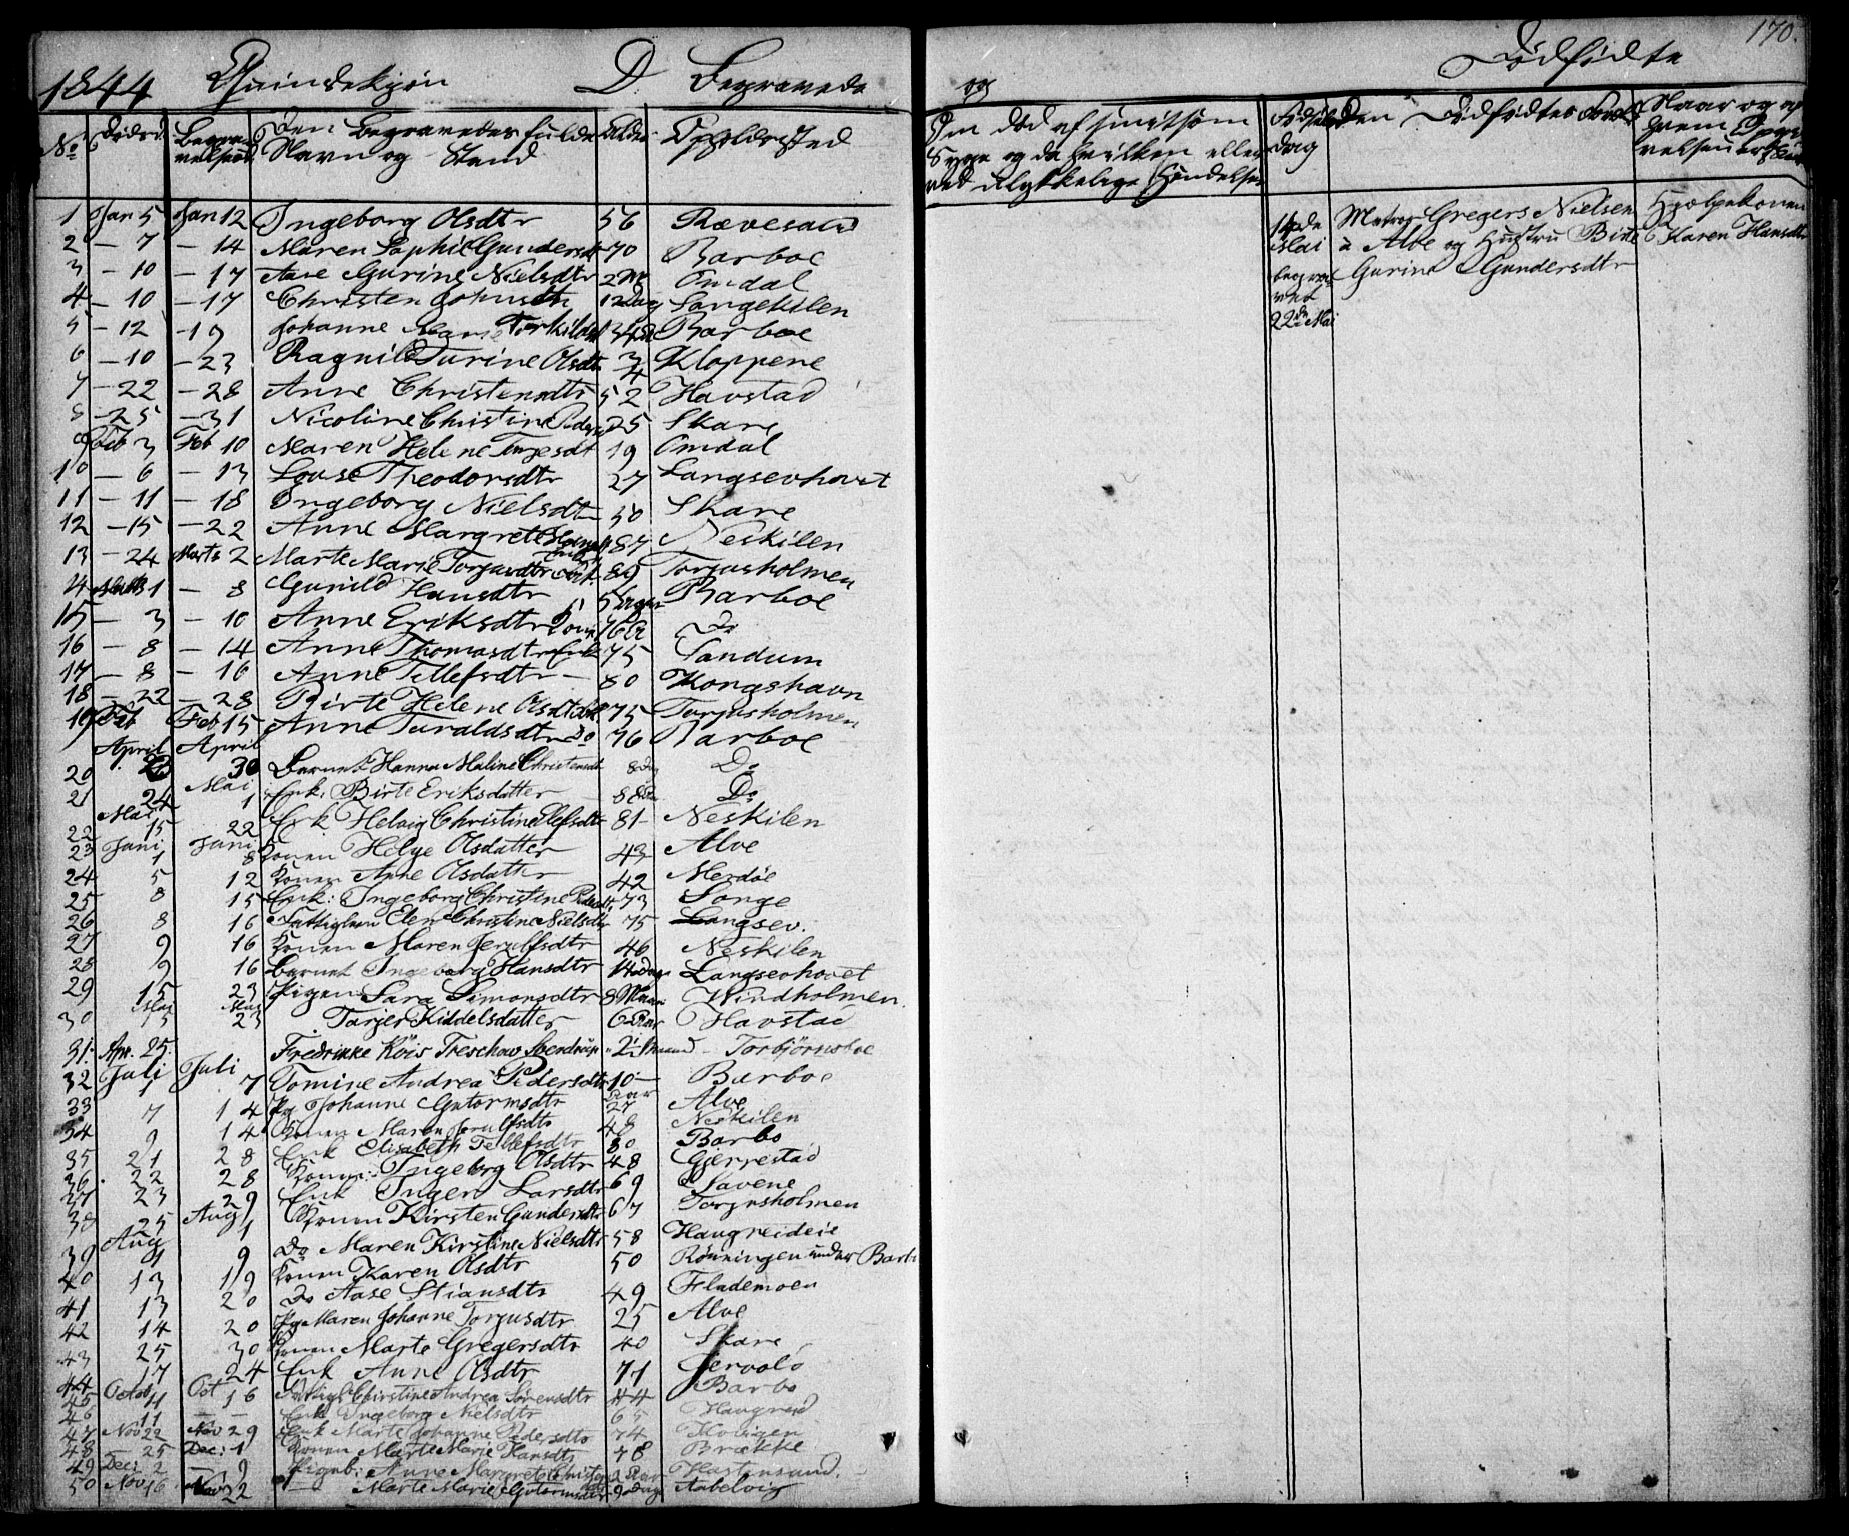 170.
1844 Qvindekjøn D. Begravede og Dødfødte
No Dødsd. Begravelsesd. Den Begravedes fulde Navn og Stand Alder Opholdssted
Om død af smitsom Syge og da hvilken eller ved ulykkelige Hændelser
Fødsels dag Den Dødfødtes Foræl
Naar og af hvem
1 Jan 5 Jan 12 Ingeborg Olsdtr 56 Rævesand
2 – 7 – 14 Maren Sophie Gundersdt 70 Barboe
3 – 10 – 17 Ane Gurine Nielsdtr 2 M Omdal
4 – 10 – 17 Christen Johnsdtr 12 Dag Langekilen
5 – 12 – 19 Johanne Marie Terkildsd Barboe
6 – 10 – 23 Ragnild Turine Olsdtr 3/4 Kloppene
7 – 22 – 28 Anne Christensdtr 52 Havstad
8 – 25 – 31 Nicoline Christine Peders 25 Skare
9 Feb 3 Feb 10 Maren Helene Terjesdt 19 Omdal
10 – 6 – 13 Lovise Theodorsdtr 27 Langsevhovet
11 – 11 – 18 Ingeborg Nielsdtr 50 Skare
12 – 15 – 22 Anne Margrete 87 Neskilen
13 – 24 Marts 2 Marte Marie Torjusdtr 89 Torjusholmen
14 Marts 1 – 8 Gunild Hansdtr 5 Barboe
15 – 3 – 10 Anne Eriksdtr 76 Do
16 – 8 – 14 Anne Thomasdtr Enk 75 Sandum
17 – 8 – 16 Anne Tellefsdtr – 80 Kongshavn
18 – 22 – 28 Birte Helene Olsdtr 75 Torjusholmen
19 Feb Feb 15 Anne Taraldsdtr do 76 Barboe
April April
20 30 Barnet Hanna Maline Christensdt 8 Do
Mai
21 24 1 Enk. Birte Eriksdatter 88 Do
Mai
22 15 22 Enk Helvig Christine 81 – Neskilen
Juni Juni
23 1 8 Konen Helge Olsdatter 43 Alve
24 5 12 Konen Anne Olsdatter 42 Merdøe
25 8 15 Enk: Ingeborg Christine 73 Songe
26 8 16 Fattiglem Elen Christine Nielsdtr 75 Langsev.
27 9 16 Konen Maren Jerulfsdtr 46 Neskilen
28 9 16 Barnet Ingeborg Hansdtr 14 Dage Langsevhovet
29 15 23 Pigen Sara Simonsdtr 8 Maan Windholmen.
Mai Mai
30 15 23 Tarjer Kiddelsdatter 6 Aar Havstad
31. Apr. 25. Fredrikke Röis Treschow Sverdrup 2½ Maaned – Torbjørnsboe
Juli Juli
32 1 7 Tomine Andrea Pedersdtr 10 – Barboe
33 7 14 Pg Johanne Gutormsdtr 27 Alve
34 9 14 Konen Maren Jerulfsdtr 48 Neskilen
35 21 28 Enk Elisabeth Tellefsdtr 80 Barbo
36 22 28 Konen: Ingeborg Olsdtr 48 Gjerrestad
37 23 29 Enk Inger Larsdtr 69 Savene
Aug
38 25 1 Konen Kirsten Gundersdtr 67 Torjusholmen
Aug
39 9 Do Maren Kirstine Nielsdtr 58 Haugreideie
40 13 19 Konen Karen Olsdtr 50 Rønningen under Barbo
41 13 20 Do Aase Stiansdtr 49 Flademoen
42 14 20 Pg Maren Johanne Torjusdtr 25 Alve
43 25 30 Konen Marte Gregersdtr 40 Skare
44 17 24 Enk Anne Olsdtr 71 Jervold
45 Octob 11 Oct 16 Christine Andrea Sørensdtr 44 Barbo
46 11 – – Enk Ingeborg Nielsdtr 65 Haugreid
47 Nov 22 Nov 29 Enk Marte Johanne Pedersdtr 74
48 – 25 Dec: 1 Konen Marte Marie Hansdtr 48 Brække
49 Dec: 2 – 9 Pigeb: Anne Margrete 2 Aar Hastensund.
50 Nov 16 Nov 22 Marte Marie Gutormsdtr 9 Dage Aabelvig
14de Mai begravet 22de Mai
Matros Gregers Nielsen
Alve og Hustru Birte
Gurine Gundersdtr
Hjælpekonen
Karen Hansdtr